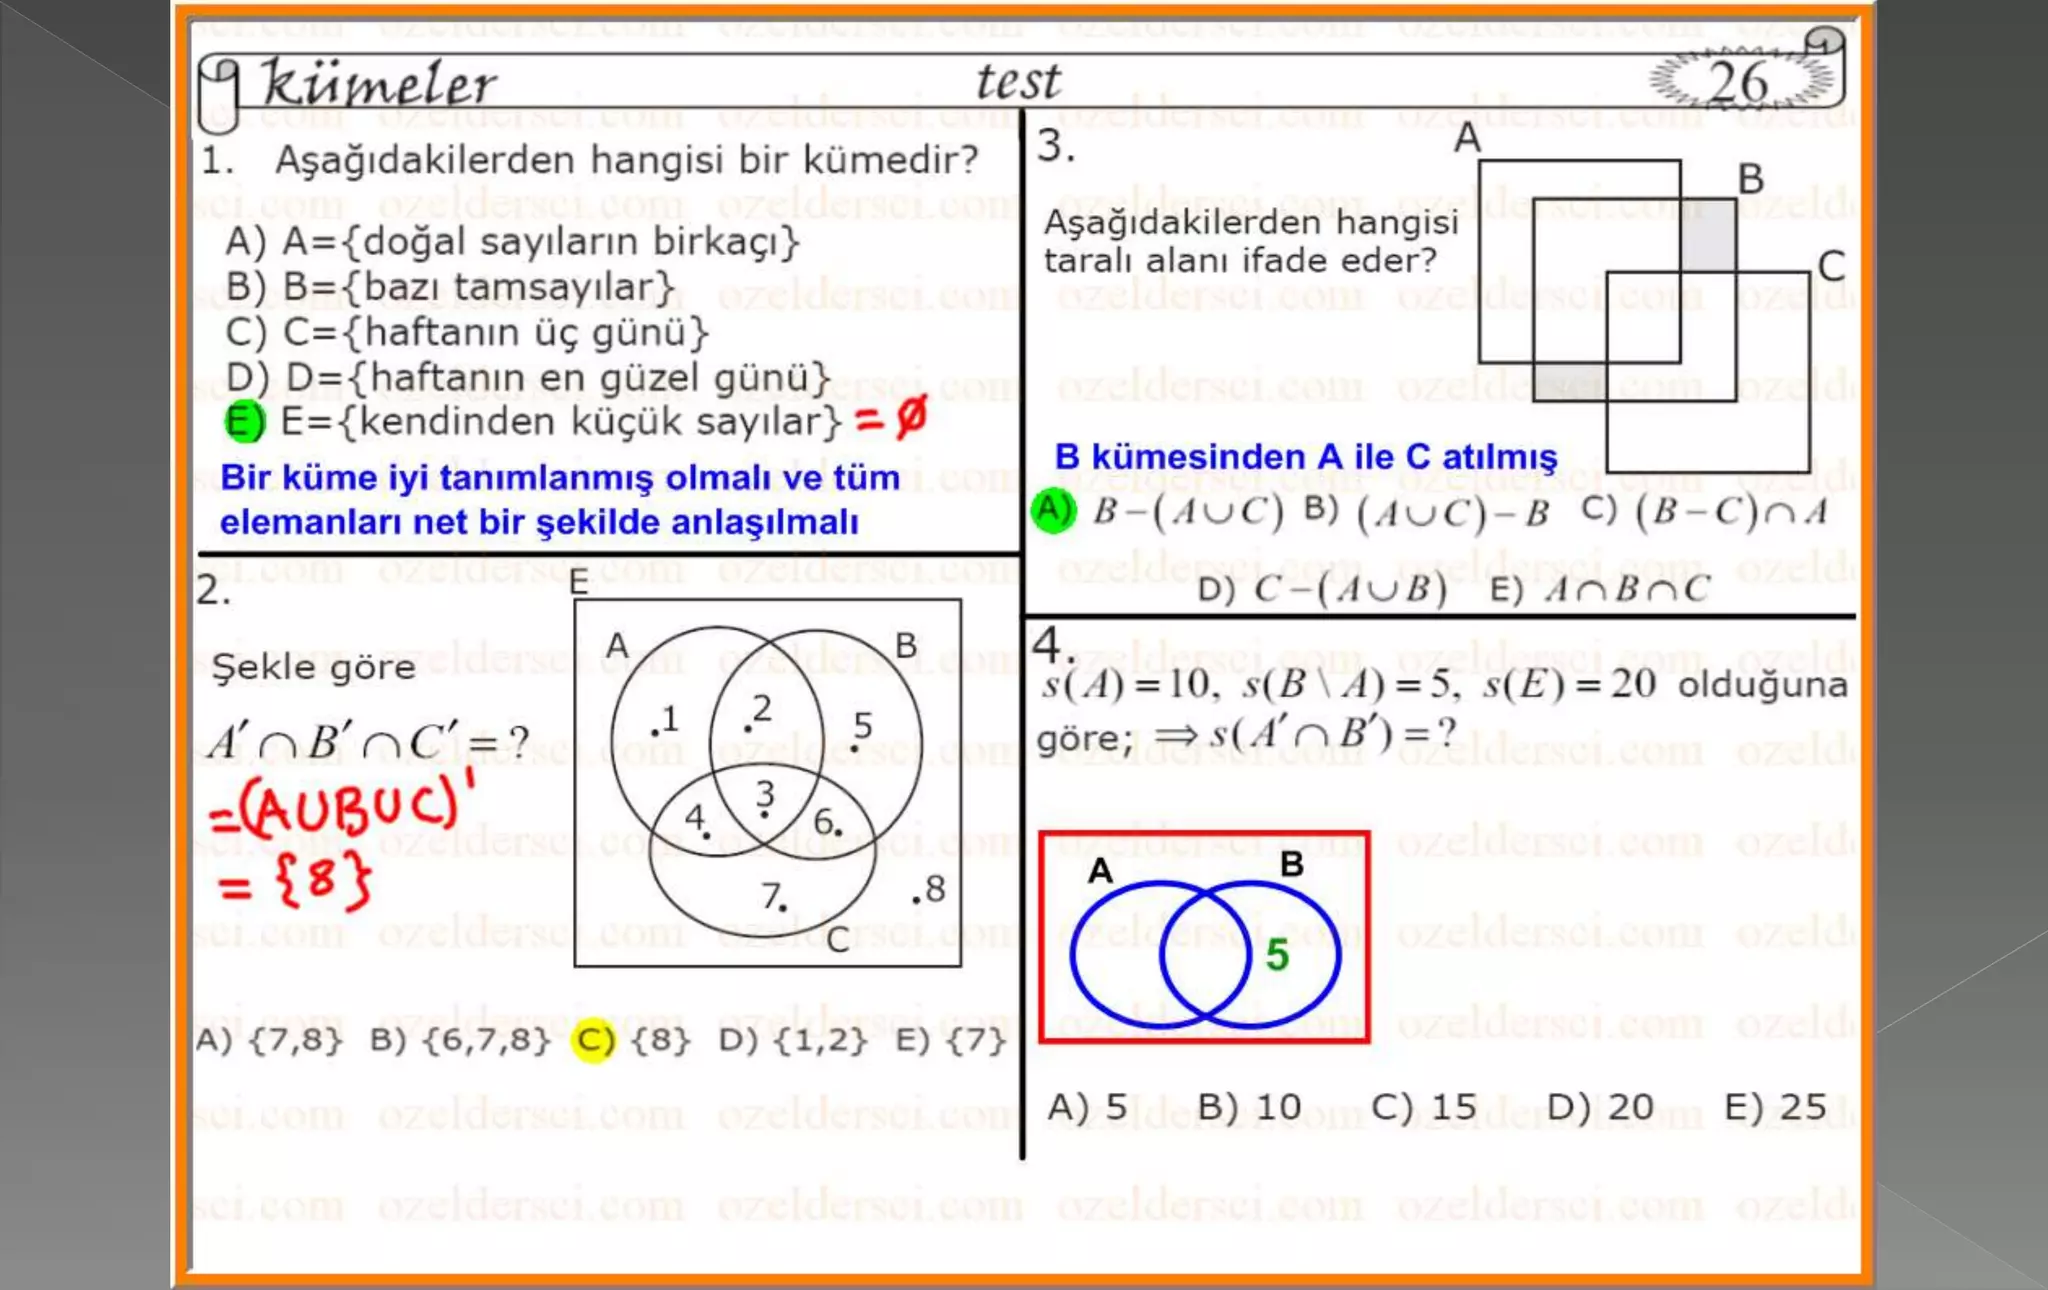 kümeler test 26
1. Aşağıdakilerden hangisi bir kümedir?
A) A={doğal sayıların birkaçı}
B) B={bazı tamsayılar}
C) C={haftanın üç günü}
D) D={haftanın en güzel günü}
E) E={kendinden küçük sayılar} = ∅
Bir küme iyi tanımlanmış olmalı ve tüm
elemanları net bir şekilde anlaşılmalı
2.
E
A B
Şekle göre
A′∩B′∩C′=?
=(AUBUC)'
= {8}
.1 2 5
3
4 6
7 .8
C
A) {7,8} B) {6,7,8} C) {8} D) {1,2} E) {7}
3.
A
B
C
Aşağıdakilerden hangisi
taralı alanı ifade eder?
B kümesinden A ile C atılmış
A) B−(A∪C) B) (A∪C)−B C) (B−C)∩A
D) C−(A∪B) E) A∩B∩C
4.
s(A)=10, s(B\A)=5, s(E)=20 olduğuna
göre; ⇒s(A′∩B′)=?
A B
5
A) 5 B) 10 C) 15 D) 20 E) 25
ozeldersci.com